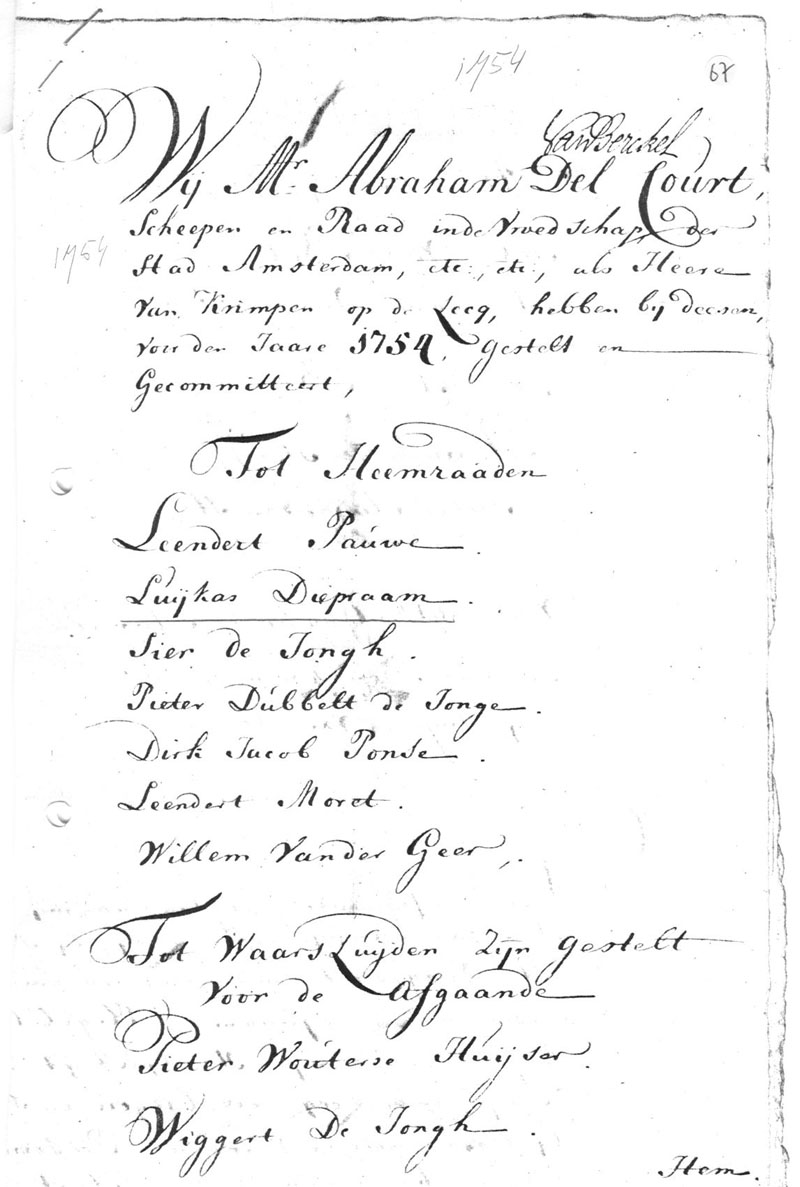 1754
67
Van Berckel
Wij Mr. Abraham Del Court,
Scheepen en Raad inde Vroedschap der
1754
Stad Amsterdam, etc:, etc:, als Heere
Van Krimpen op de Lecq, hebben bij deesen,
voor den Jaare 1754, gestelt en
Gecommitteert,
Tot Heemraaden
Leendert Pauwe.
Luijkas Diepraam.
Sier de Jongh.
Pieter Dubbelt de Jonge.
Dirk Jacob Ponse.
Leendert Moret.
Willem Vander Geer,.
Tot WaarsLuijden Zijn gestelt
Voor de Afgaande
Pieter Wouterse Huijser.
Wiggert De Jongh.
Item.